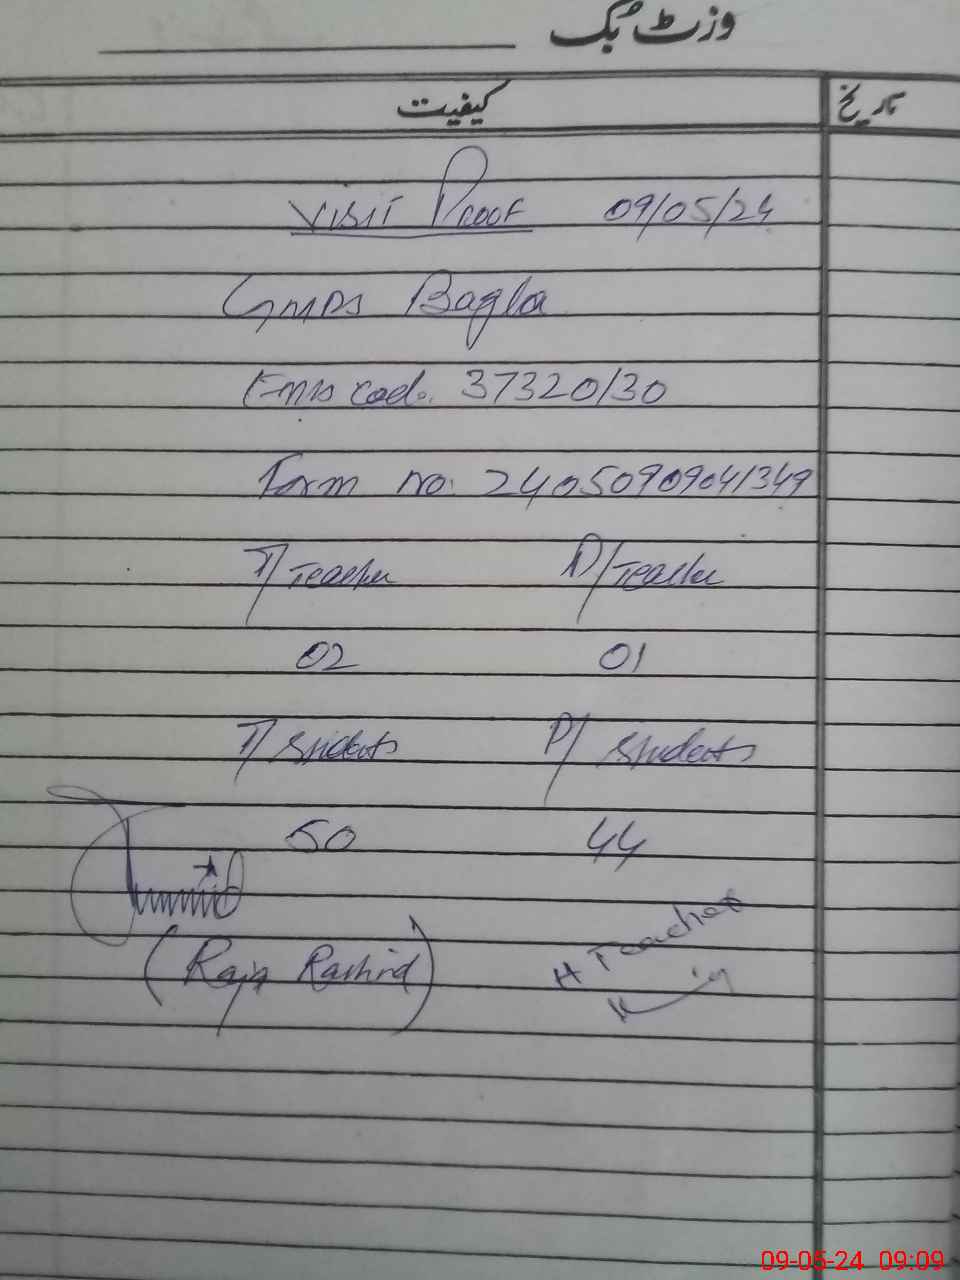 وزٹ بُک
کیفیت تاریخ
VISIT PROOF 09/05/24
GMPS Bagla
Emis code. 37320130
Form no. 24050909041349
T/Teacher P/Teacher
02 01
T/Students P/Students
50 44
(Raja Rashid)
H Teacher
09-05-24 09:09